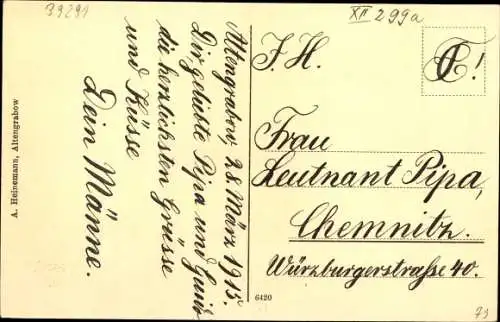 39291
XII 299a
Altengrabow, 28. März 1915.
Dir, geliebte Pipa und
die herzlichsten Grüsse
und Küsse
Dein Männe.
A. Heinemann, Altengrabow
F. H.
Frau
Leutnant Pipa,
Chemnitz.
Würzburgerstraße 40.
6420